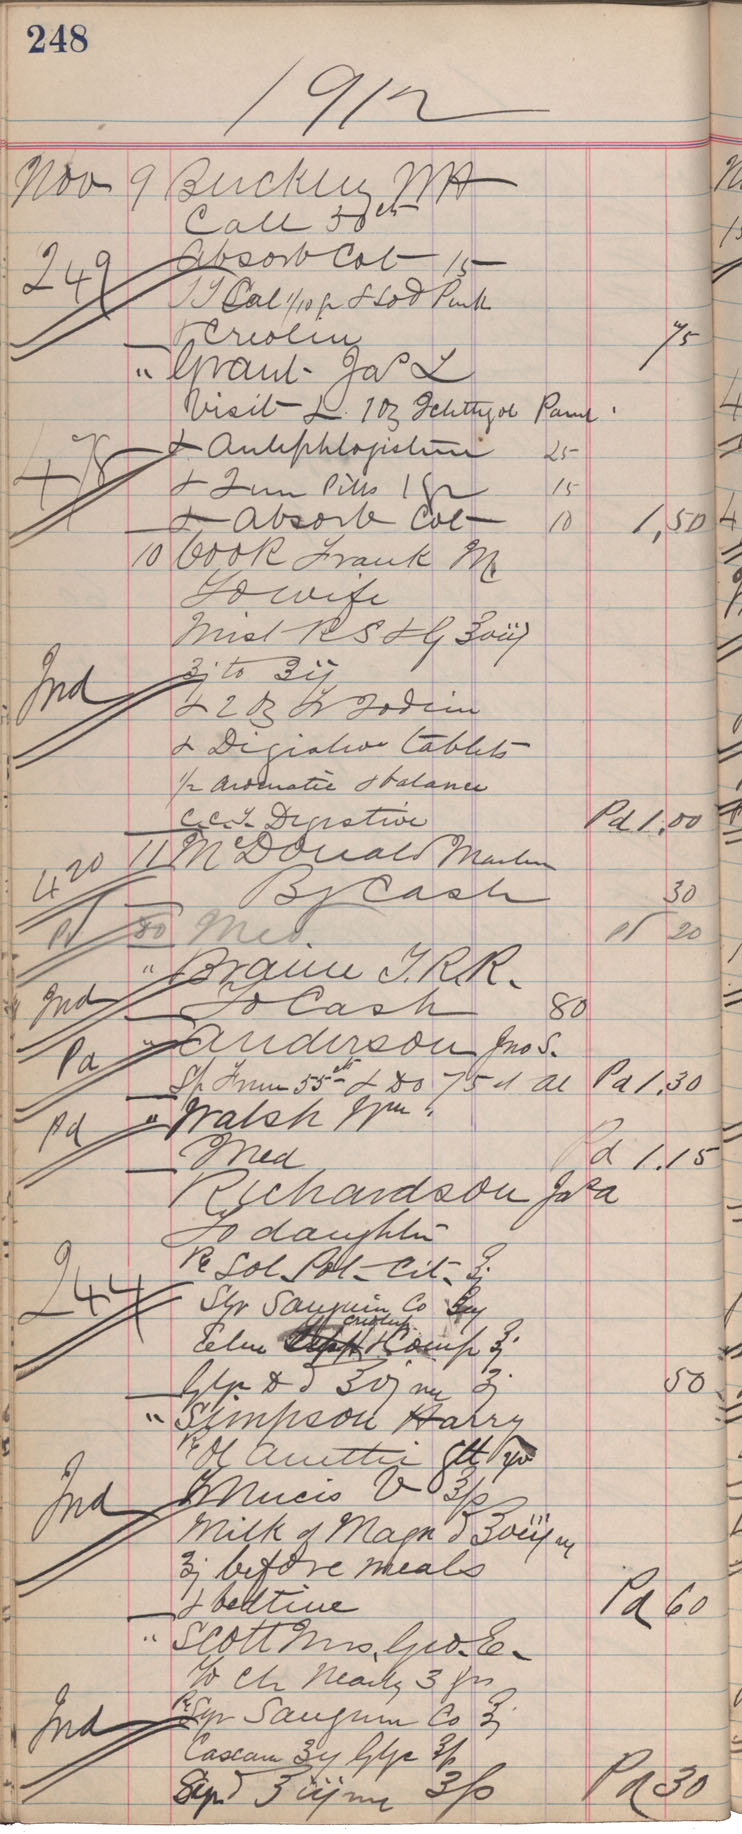 248
1912
Nov 9 Buckley WH
Call 50 cts
249 Absorb Cot 15
TT Cal 1/10 gr & Sod Pink
& Creolin 75
" Grant Jas L
Visit & 1 oz Ichthyol
478 & Antiphlogistine 25
& Pills 1 gr 15
& Absorb Cot 10 1,50
10 Cook Frank M
To wife
Mist R S & G ℥viij
Ind ʒj to ʒij
& 2 oz Tr Iodin
& Digestive tablets
1/2 aromatic & balance
C.C.T. Digestive Pd 1.00
420 11 McDonald Martin
By Cash 30
Pd 80 Med Pd 20
" Braine T.R.R.
Ind To Cash 80
" Anderson Jno S.
Pa Sp 55 cts & Do 75 Pd 1.30
" Walsh Wm
Pd Med Pd 1.15
Richardson Jas A
To daughter
℞ Sol Pot Cit
244 Syr Sanguin Co
Comp
Glyc 50
" Simpson Harry
℞ Ol gtt
Ind V
Milk of Magn
ʒj before meals
& bedtime Pd 60
" Scott Mrs. Geo. E.
To Ch nearly 3 yrs
℞ Syr Sanguin Co
Ind Cascara Glyc
Pd 30